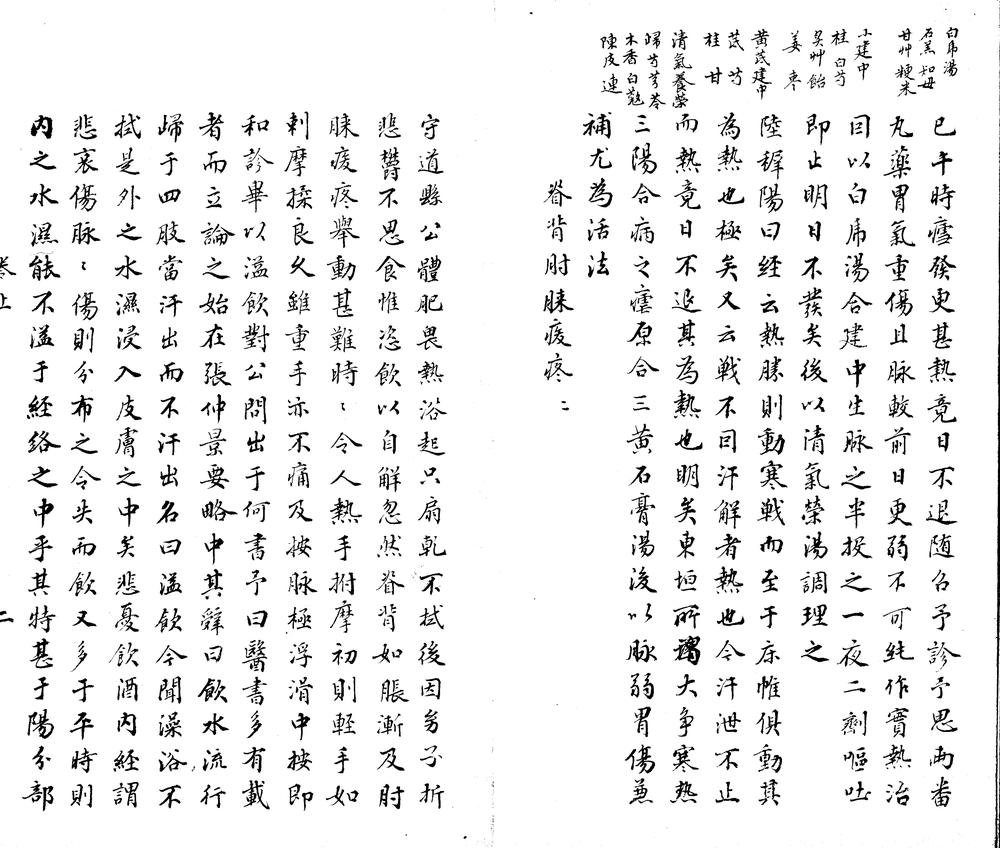 白帍湯
石羔 知母
甘艸 粳米
小建中
桂 白芍
炙艸 飴
姜 枣
黄芪建中
芪 芍
桂 甘
清氣養榮
歸 芍 芎 苓
木香 白蔻
陳皮 連
巳午時瘧發更甚熱竟日不退随名予診予思両畨
丸藥胃氣重傷且脉較前日更弱不可純作實熱治
曰以白帍湯合建中生脉之半投之一夜二劑嘔吐
即止明日不發矣後以清氣榮湯調理之
陸穉陽曰经云熱勝則動寒戰而至于床惟俱動其
為熱也極矣又云戰不曰汗解者熱也今汗泄不止
而熱竟日不退其為熱也明矣東垣所謂大争寒熱
三陽合病之瘧原合三黄石膏湯後以脉弱胃傷兼
補尤為活法
脊背肘腖痠疼〻
守道縣公體肥畏熱浴起只扇乾不拭後因多子折
悲欝不思食惟恣飲以自解忽然脊背如脹漸及肘
腖痠疼舉動甚難時〻令人熱手拊摩初則軽手如
刺摩揉良久雖重手亦不痛及按脉極浮滑中按即
和診畢以溢飲對公問出于何書予曰醫書多有載
者而立論之始在張仲景要略中其辭曰飲水流行
歸于四肢當汗出而不汗出名曰溢飲今聞澡浴不
拭是外之水濕浸入皮膚之中矣悲憂飲酒内經謂
悲哀傷脉〻傷則分布之令失而飲又多于平時則
内之水濕能不溢于経絡之中乎其特甚于陽分部